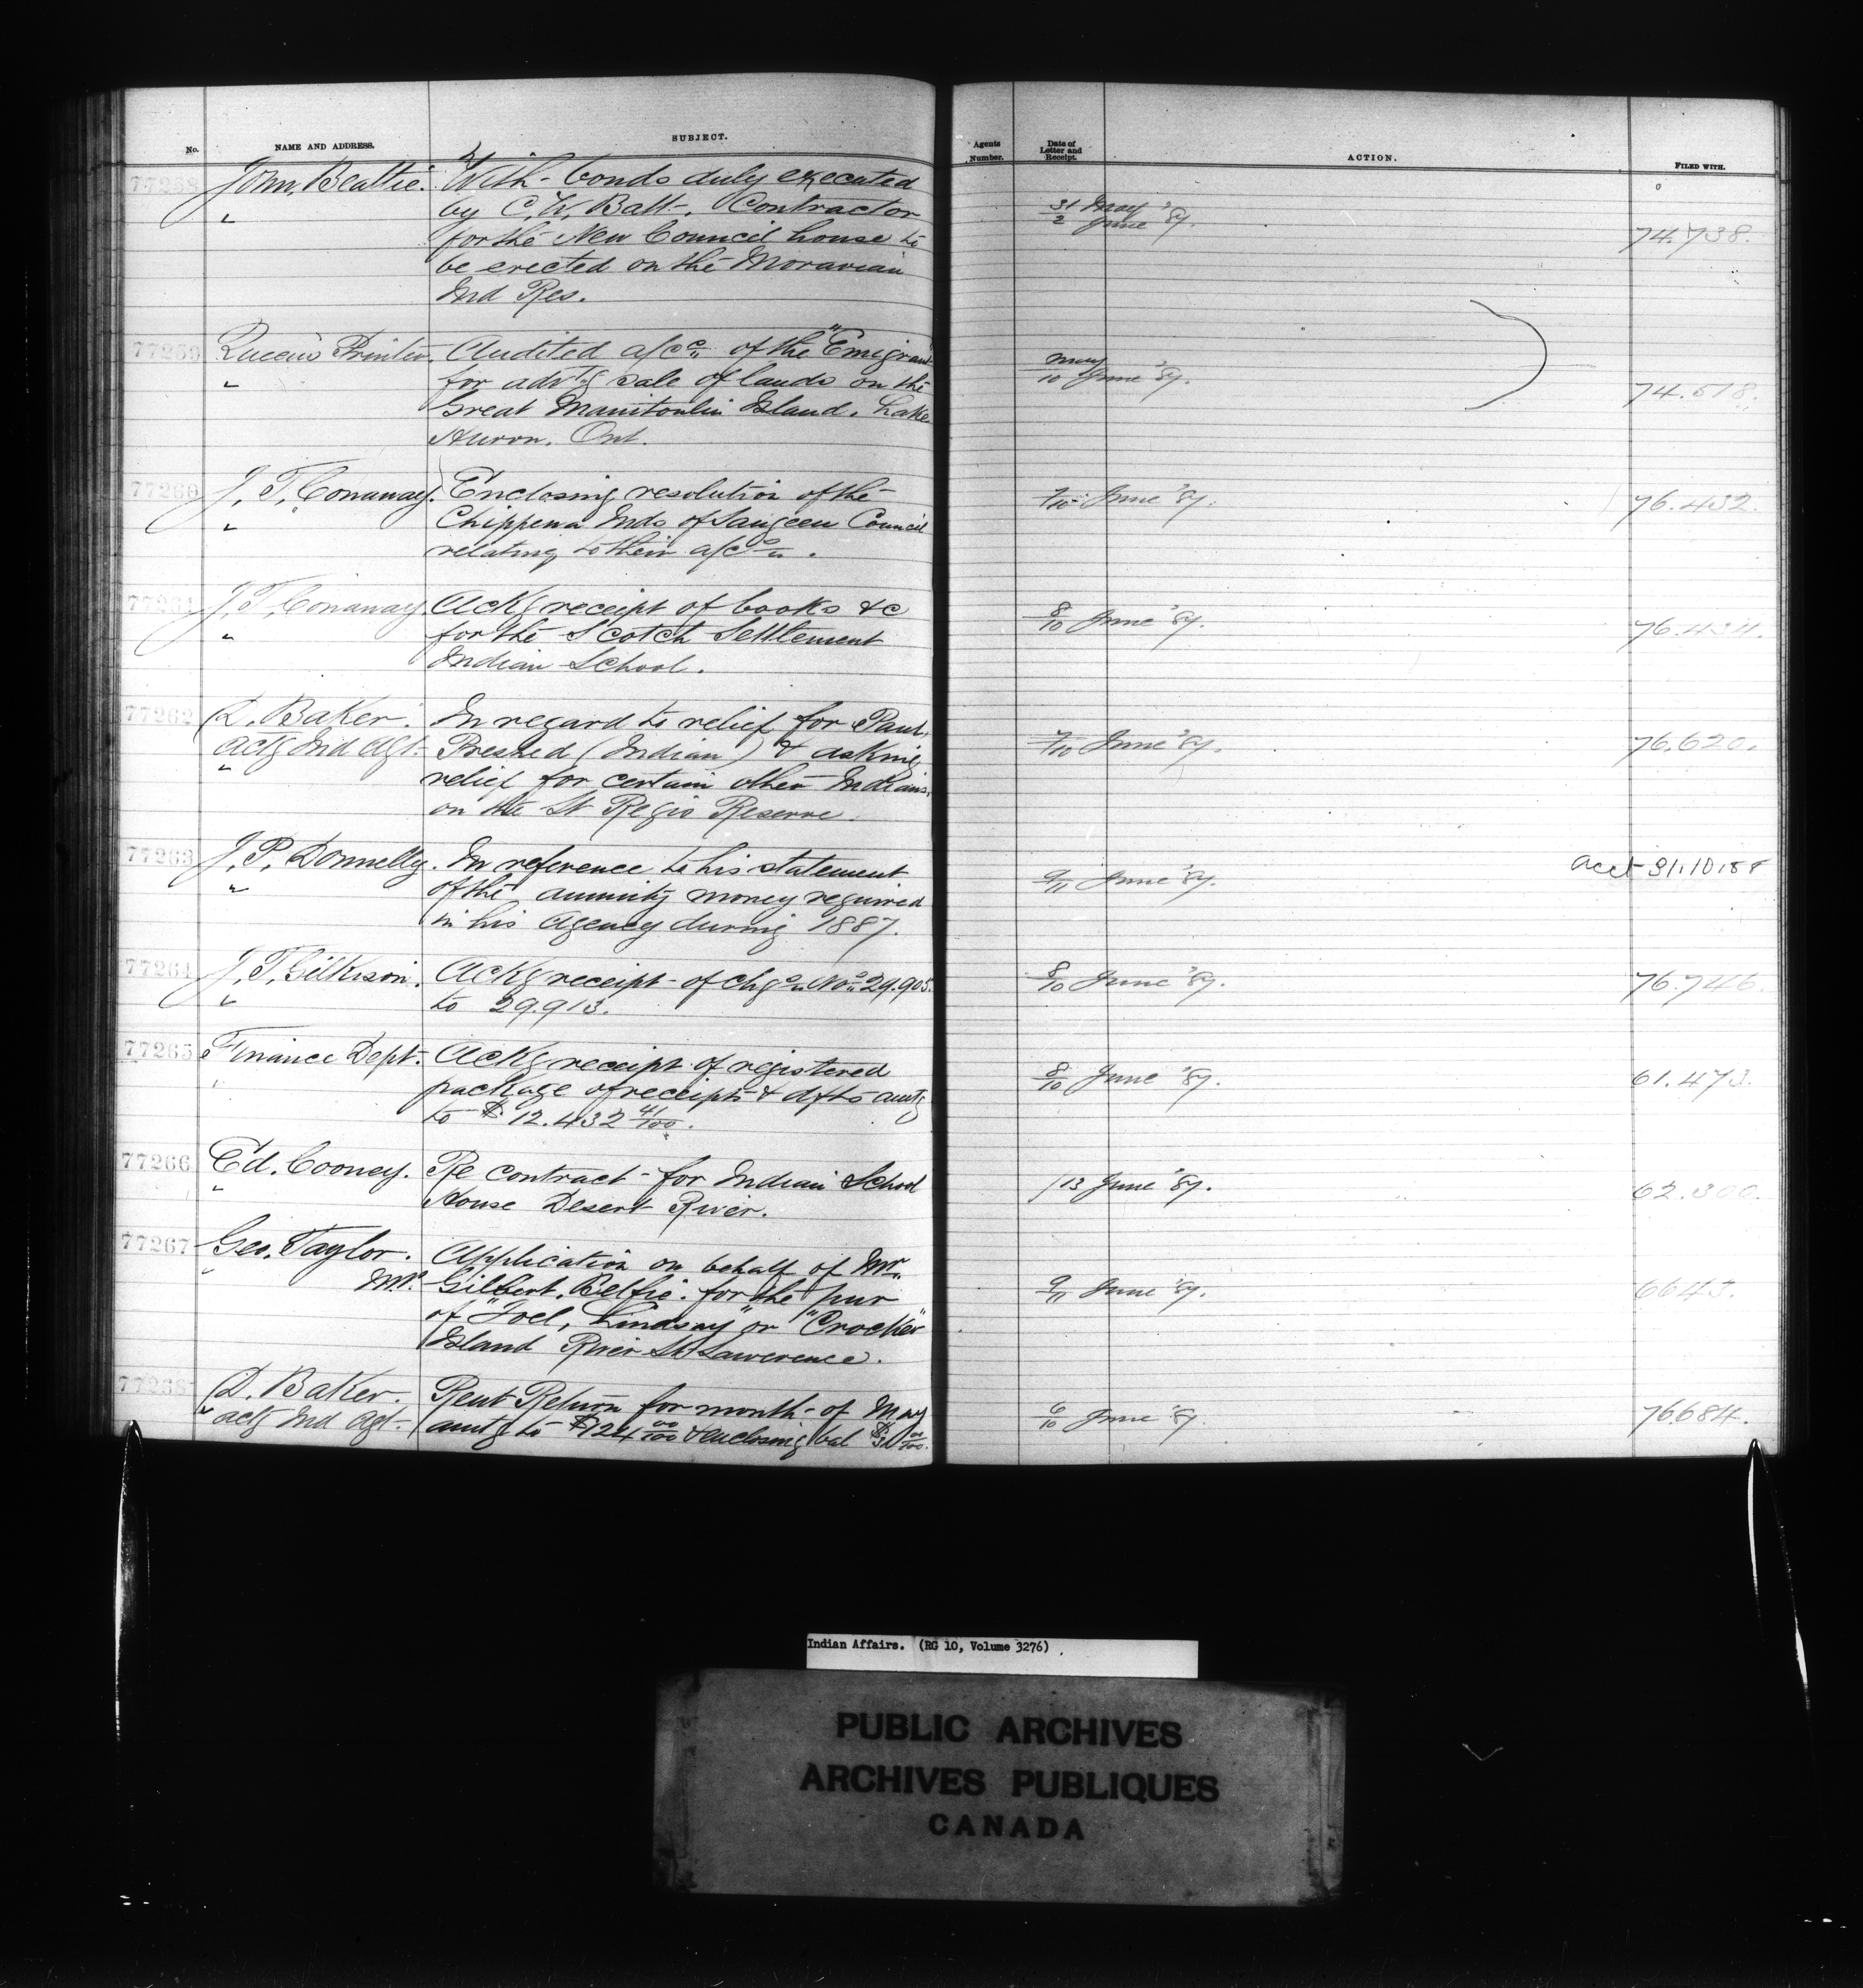 No. NAME AND ADDRESS. SUBJECT. Agents Number. Date of Letter and Receipt. ACTION. FILED WITH.
77258 John, Beattie. With bonds duly executed
" by C. W. Batt, Contractor 31/2 May June '87.
for the New Council house to 74.738.
be erected on the Moravian
Ind Res.
77259 Queens Printer. Audited a/cs of the "Emigrant
" for advtg sale of lands on the May/10 June '87.
Great Manitoulin Island. Lake 74.518.
Huron. Ont.
77260 J. T. Conaway. Enclosing resolution of the 7/10 June '87. 76.432.
" Chippewa Inds of Saugeen Council
relating to their a/cs.
77261 J. T. Conaway. Ackg receipt of books &c 8/10 June '87.
" for the Scotch Settlement 76.434.
Indian School.
77262 D. Baker. In regard to relief for Paul,
actg Ind Agt. Preshed (Indian) & asking 7/10 June '87. 76.620.
" relief for certain other Indians
on the St Regis Reserve.
77263 J. P. Donnelly. In reference to his statement acct 31.10.88
" of the annuity money required 9/11 June '87.
in his Agency during 1887.
77264 J. T. Gilkison. Ackg receipt of chqs Nos 29.905. 8/10 June '87. 76.746.
" to 29.913.
77265 Finance Dept. Ackg receipt of registered 8/10 June '87. 61.473.
" package of receipts & dfts amtg
to $12.432 41/100.
77266 Ed. Cooney. Re contract for Indian School /13 June '87. 62.300.
" House Desert River.
77267 Geo. Taylor. Application on behalf of Mr
" M.P. Gilbert. Belfie. for the pur 9/11 June '87. 6643.
of "Joel, Lindsay" or "Crocker"
Island River St Lawerence.
77268 D. Baker. Rent Return for month of May
" actg Ind Agt. amtg to $124 00/100 & enclosing bal $31 00/100. 6/10 June '87. 76684.
Indian Affairs. (RG 10, Volume 3276)
PUBLIC ARCHIVES
ARCHIVES PUBLIQUES
CANADA